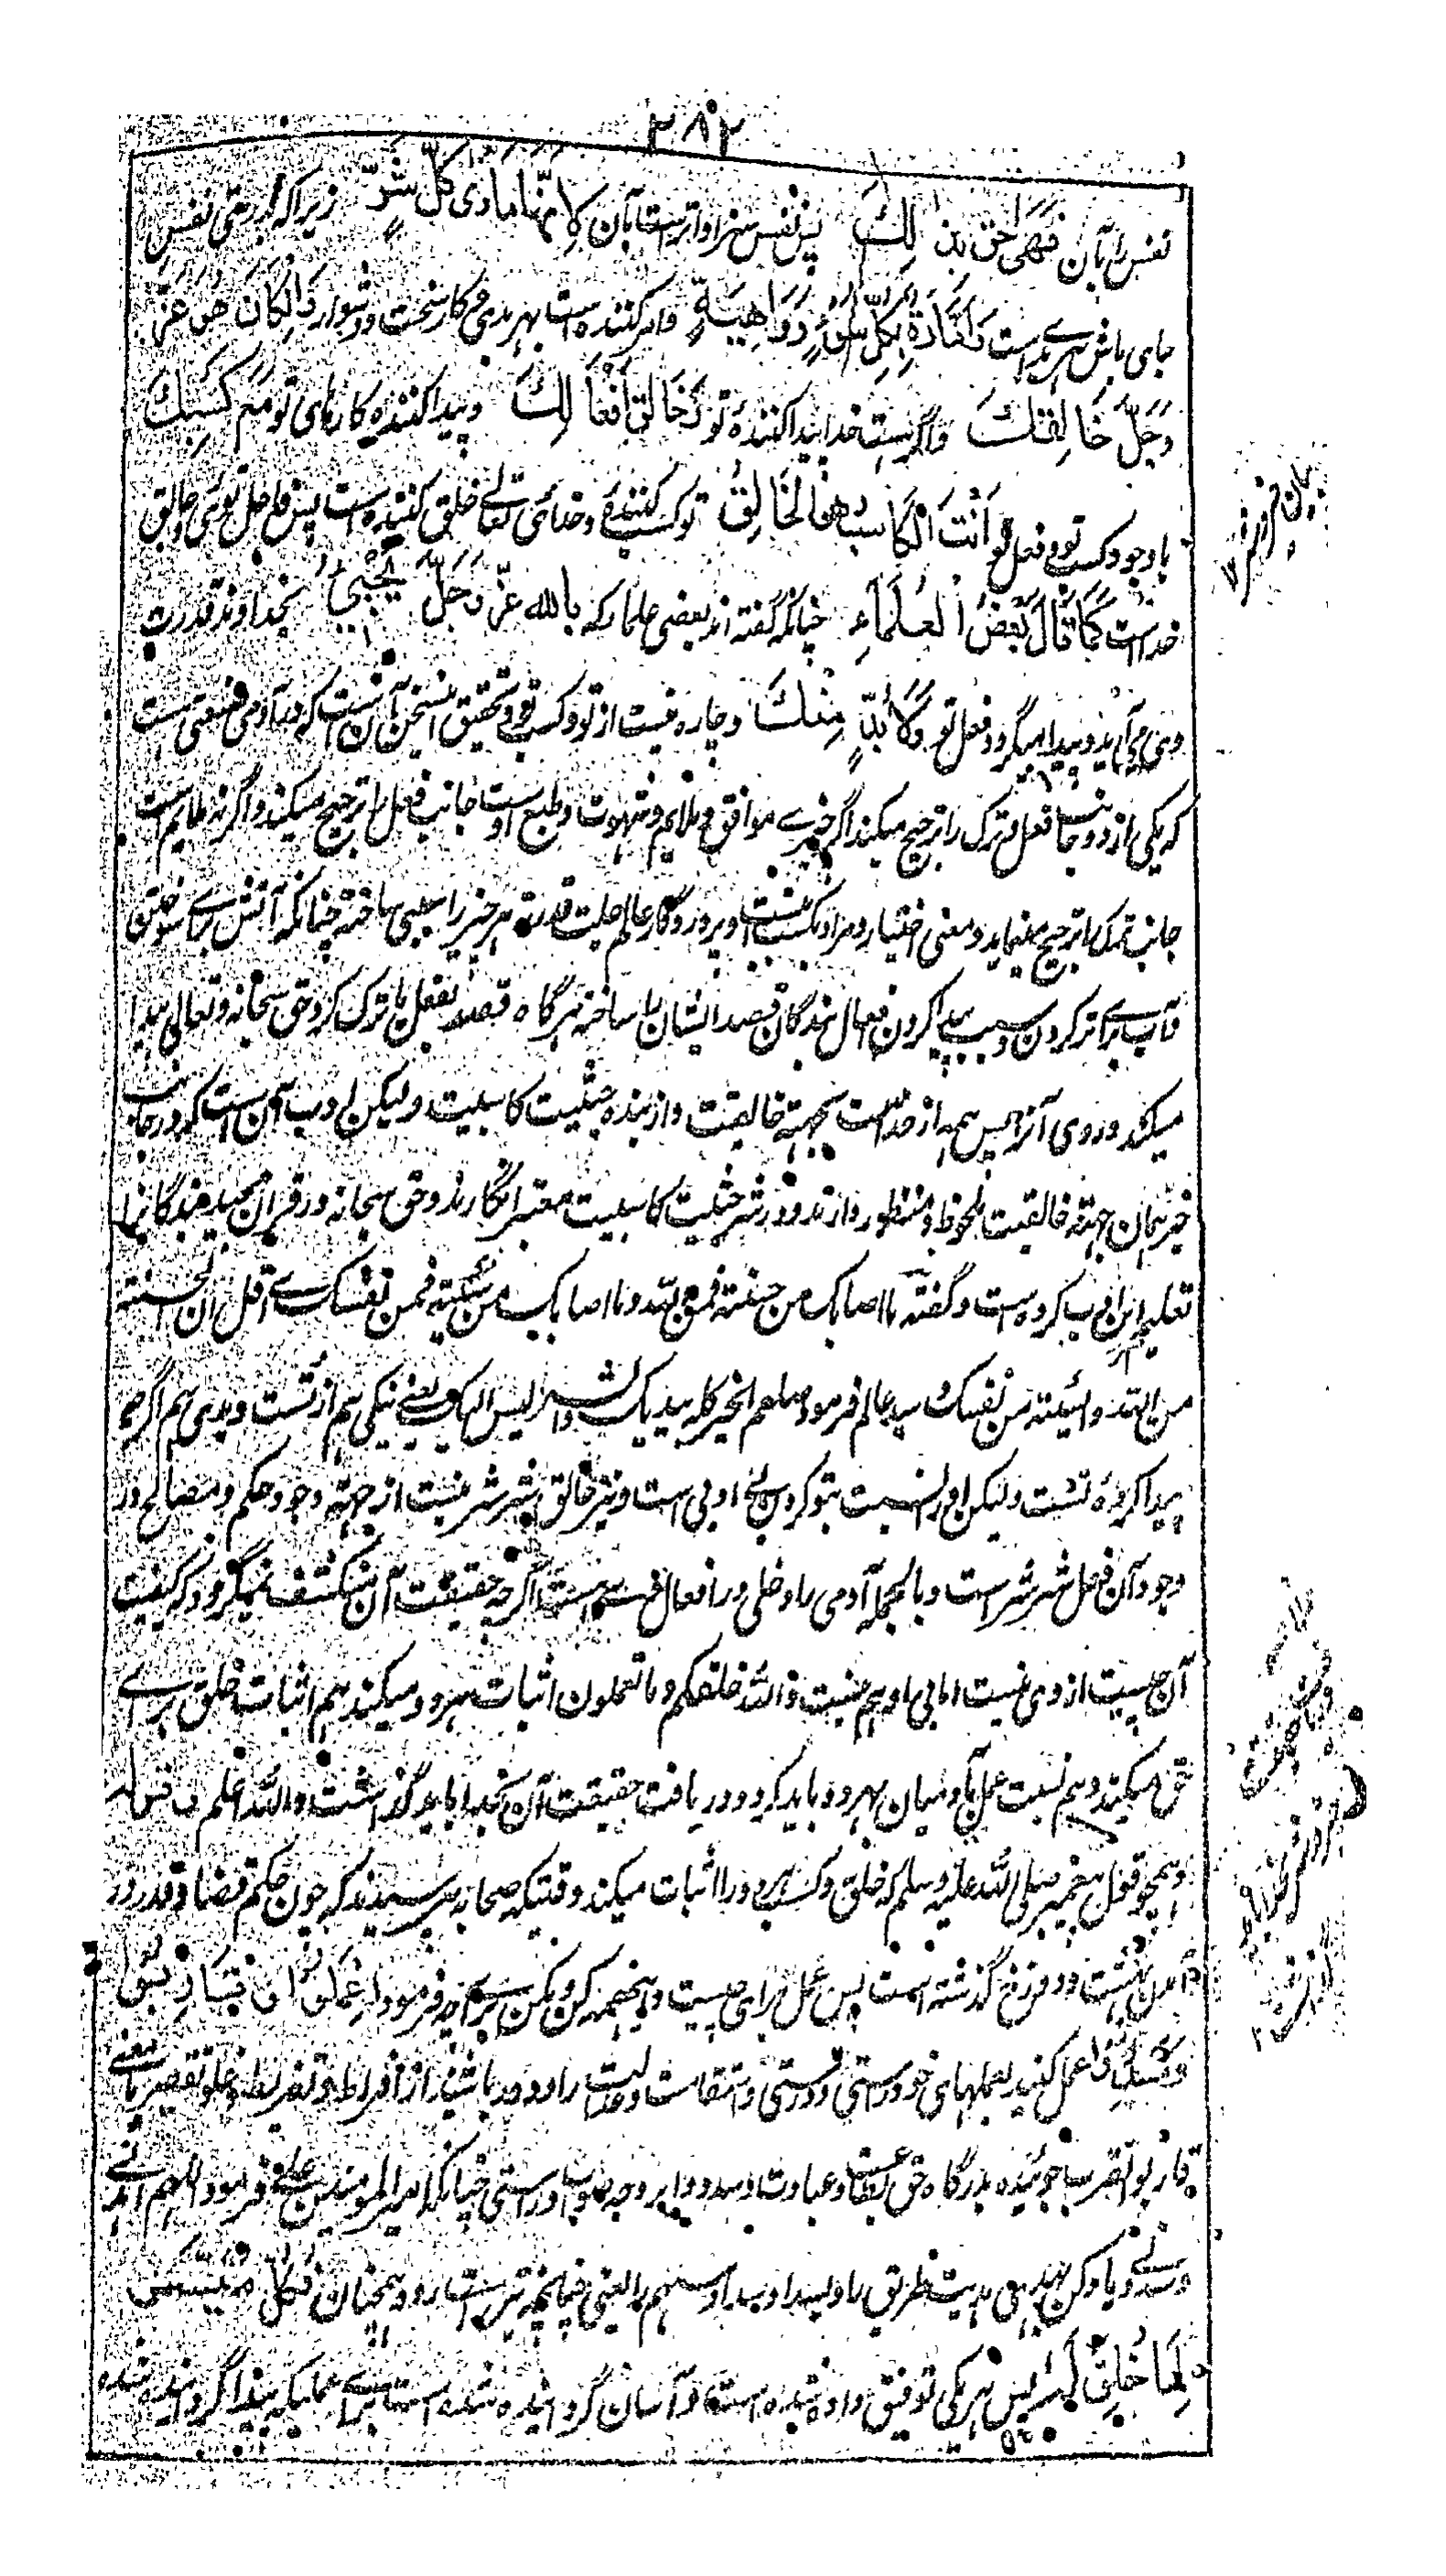 ٢٨٢
نفس را بآن فَهِیَ اَحَقُّ بِذٰلِكَ پس نفس سزاوارترست بآن لِاَنَّهَا مَاوٰی كُلِّ شَرٍّ زیراکه بدرستی نفس
جای باش هر بدی است وَاَمَّارَةٌ بِكُلِّ سُوْءٍ وَدَاهِيَةٍ وامر کننده است بهر بدی و کار سخت و دشوار وَاِنْ كَانَ هُوَ عَزَّ
وَجَلَّ خَالِقَكَ واگرچه هست خدا پیدا کننده تو وَخَالِقَ اَفْعَالِكَ و پیدا کننده کارهای تو مَعَ كَسْبِكَ
با وجود کسب تو و فعل تو اَنْتَ الْكَاسِبُ وَهُوَ الْخَالِقُ تو کسب کننده و خدای تعالی خلق کننده است پس فاعل توئی و خالق
خداست كَمَا قَالَ بَعْضُ الْعُلَمَاءِ چنانکه گفته اند بعضی علما که بِاللهِ عَزَّ وَجَلَّ يَجِيْءُ بخداوند و قدرت
وی می آید و پیدا میگردد فعل تو وَلَا بُدَّ مِنْكَ و چاره نیست از تو و کسب تو و تحقیق این سخن آنست که در آدمی صفتی است
که یکی از دو جانب فعل و ترک را ترجیح میکند اگر چیزی موافق و ملایم و شهوت و طبع اوست جانب فعل را ترجیح میکند و اگر نه ملایم است
جانب ترک را ترجیح مینماید و معنی اختیار و مراد بکسب اینست و پروردگار عالم جلت قدرته هر چیز را سببی ساخته چنانکه آتش برای سوختن
و آب برای تر کردن و سبب پیدا کردن افعال بندگان قصد ایشان را ساخته هرگاه قصد بفعل یا ترک کرد حق سبحانه و تعالی پیدا
میکند در وی آنرا پس همه از خداست بجهة خالقیت و از بنده بحیثیت کاسبیت ولیکن ادب آن است که در جانب
خیر همان جهة خالقیت ملحوظ و منظور دارند و در شر حیثیت کاسبیت معتبر انگارند و حق سبحانه در قرآن مجید بندگانرا
تعلیم این ادب کرده است و گفته ما اصابک من حسنة فمن الله وما اصابک من سیئة فمن نفسک اے قل ان الحسنة
من الله والسیئة من نفسک و سید عالم فرمود صلعم الخیر کله بیدیک والشر لیس الیک یعنی نیکی هم از تست و بدی هم اگرچه
پیدا کرده تست ولیکن او را نسبت بتو کردن نه اولی است و نیز خالق شر شر نیست از جهة وجود حکم و مصالح در
وجود آن فعل شر شر است و بالجمله آدمی را دخلی در افعال هست اگرچه حقیقت آن منکشف نمیگردد که کیفیت
آن چیست از وی نیست اما بی او هم نیست والله خلقکم وما تعملون اثبات هر دو میکند هم اثبات خلق برای
حق میکند و هم نسبت عمل بآدمیان بهر دو باید کرد و دریافت حقیقت آن بخدا باید گذاشت والله اعلم
و همچو قول پیغمبر صلی الله علیه وسلم که خلق و کسب هر دو را اثبات میکند وقتیکه صحابه پرسیدند که چون حکم قضا و قدر در
آمدن بهشت و دوزخ گذشته است پس عمل برای چیست و اینهمه کن و مکن برای چه فرمود اِعْمَلُوْا وَقَارِبُوْا
وَسَدِّدُوْا عمل کنید بعملهای خود راستی و درستی و استقامت و عدالت را و دور باشید از افراط و تفریط و غلو و تقصیر یا معنی
قاربوا تقرب جوئید بدرگاه حق بطاعت و عبادت و سددوا بر وجه صواب و راستی چنانکه امیر المومنین علی فرمود اللهم اهدنی
وسددنی و یاد کن بهدی هدایت طریق را و بسداد سداد سهم را یعنی چنانچه تیر راست رود همچنان فَكُلٌّ مُيَسَّرٌ
لِمَا خُلِقَ لَهُ پس هر یکی توفیق داده شده است و آسان گردانیده شده است برای عملیکه پیدا گردانیده شده